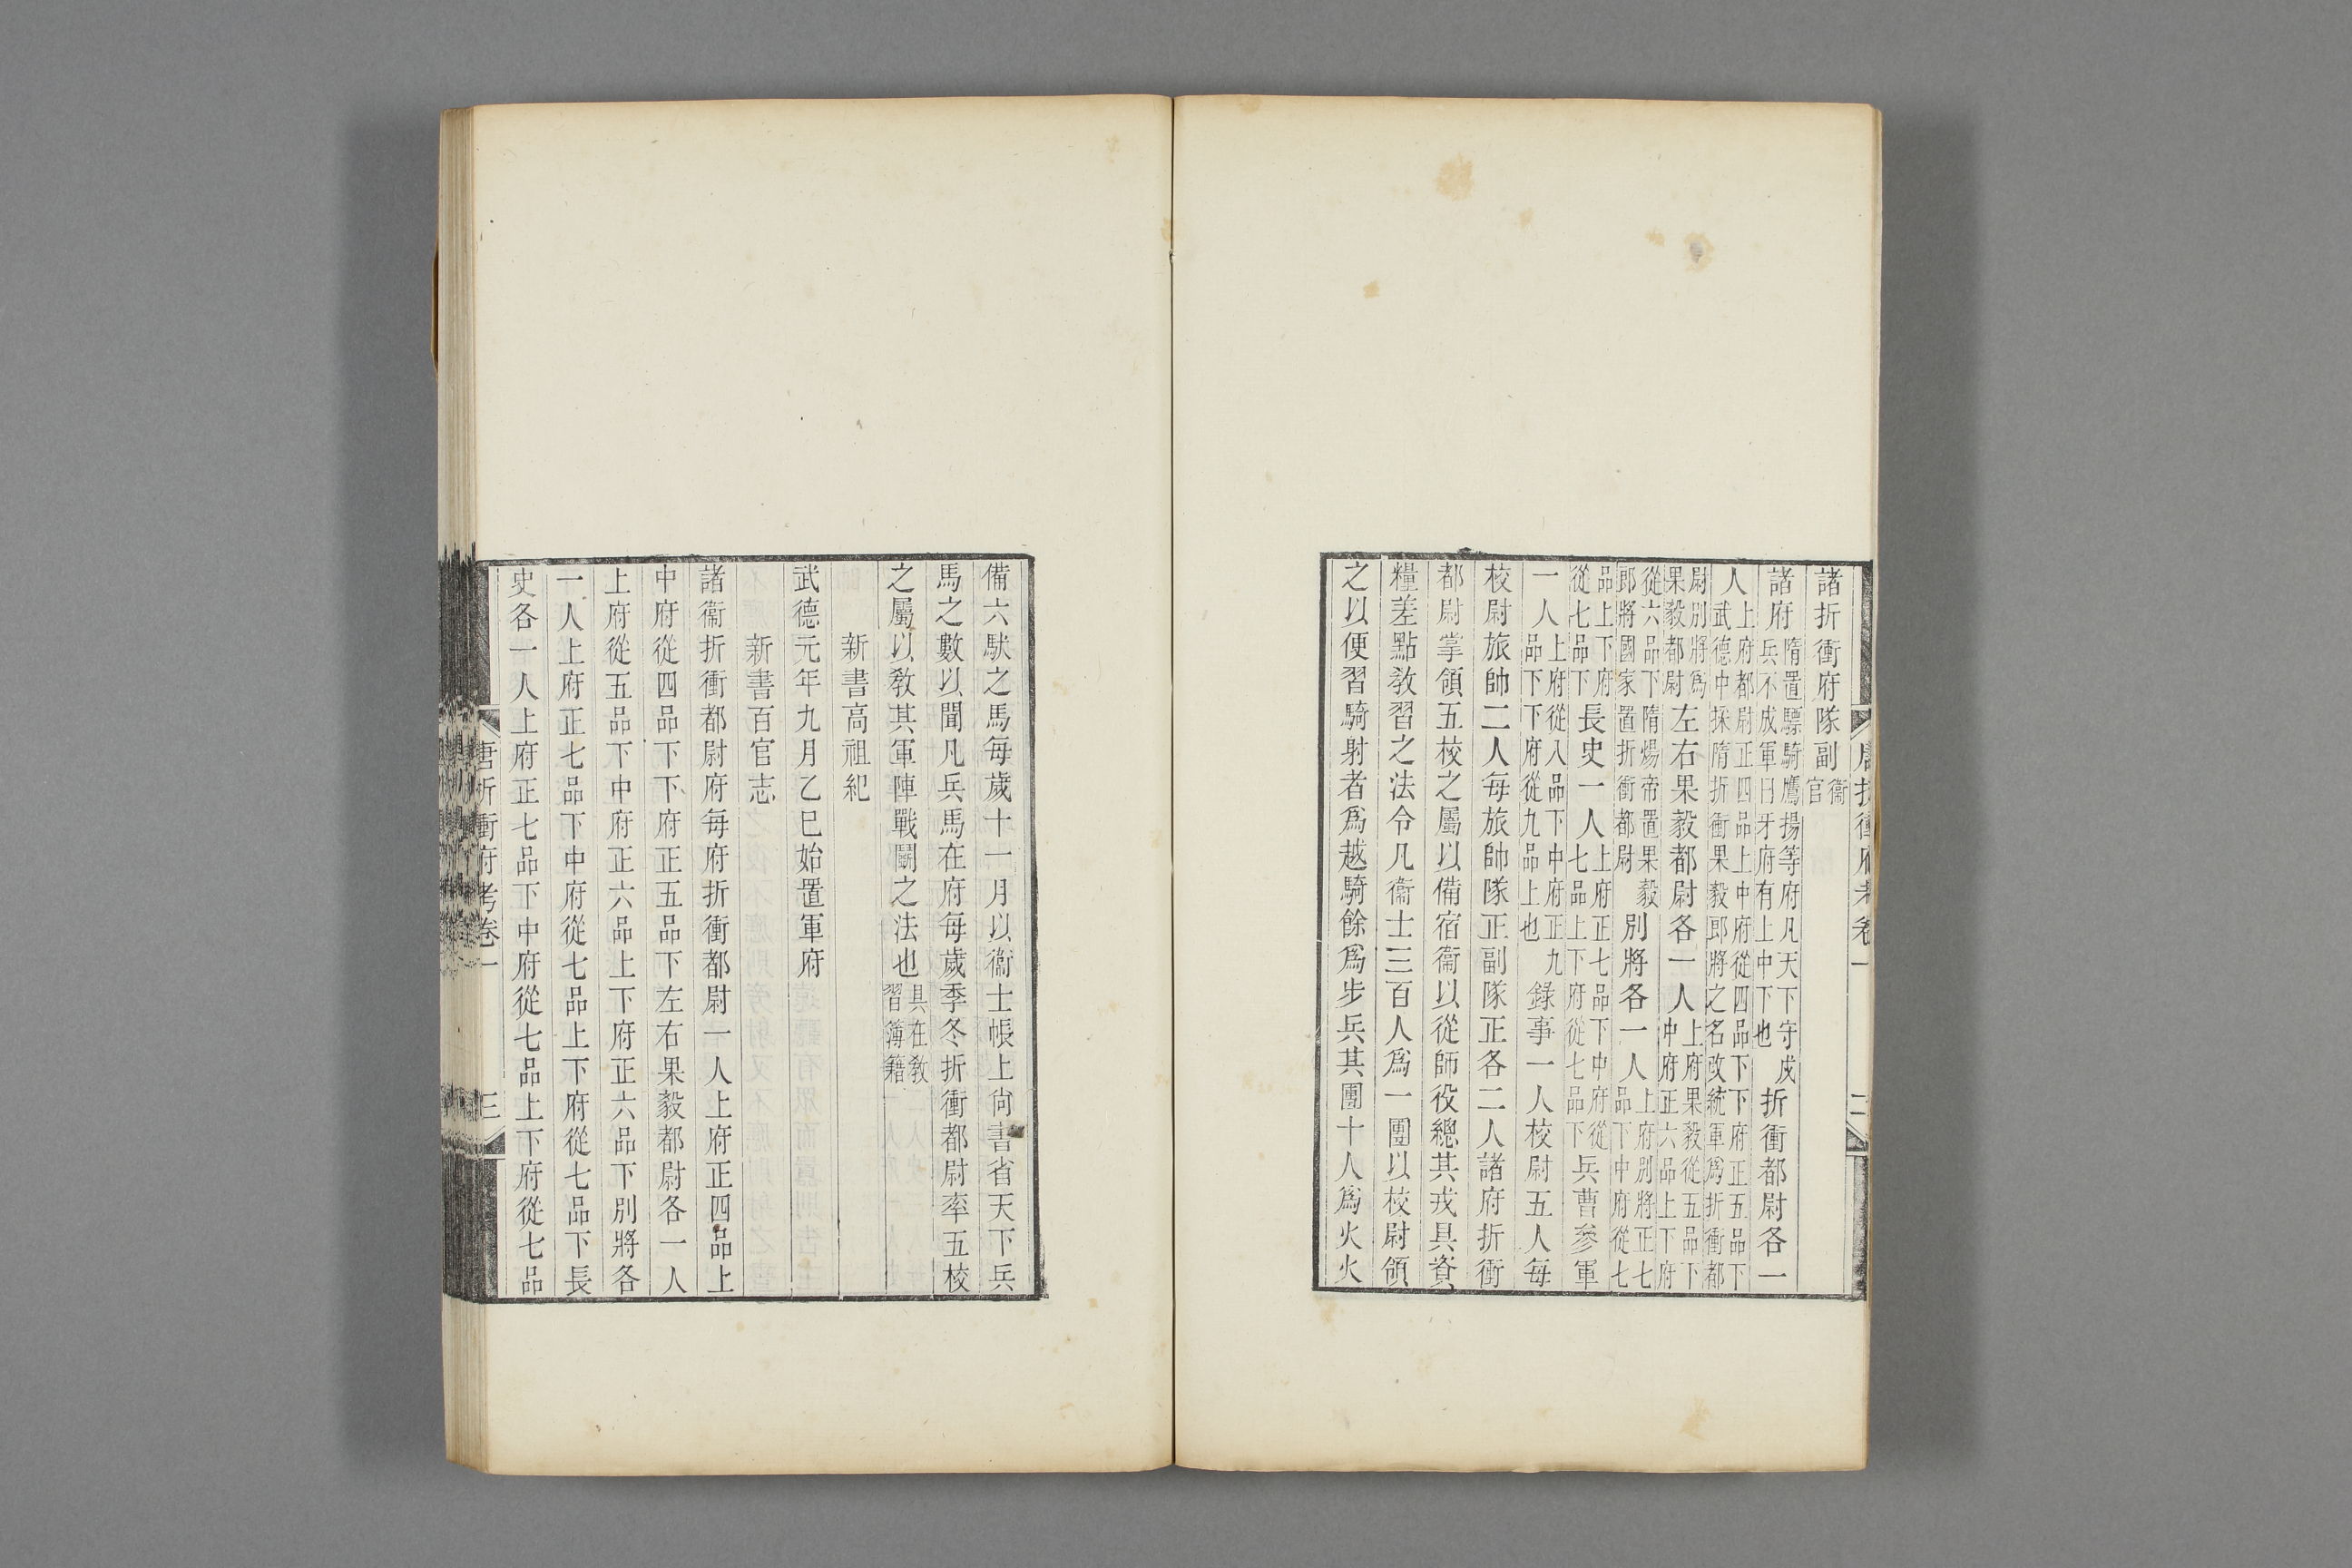 唐折衝府考卷一　二
諸折衝府隊副衞官
諸府隋置驃騎鷹揚等府凡天下守戍兵不成軍曰牙府有上中下也折衝都尉各一
人上府都尉正四品上中府從四品下下府正五品下武德中採隋折衝果毅郎將之名改統軍爲折衝都
尉別將爲果毅都尉左右果毅都尉各一人上府果毅從五品下中府正六品上下府
從六品下隋煬帝置果毅郎將國家置折衝都尉別將各一人上府別將正七品下中府從七
品上下府從七品下長史一人上府正七品下中府從七品上下府從七品下兵曹參軍
一人上府從八品下中府正九品下下府從九品上也錄事一人校尉五人每
校尉旅帥二人每旅帥隊正副隊正各二人諸府折衝
都尉掌領五校之屬以備宿衞以從師役總其戎具資
糧差點敎習之法令凡衞士三百人爲一團以校尉領
之以便習騎射者爲越騎餘爲步兵其團十人爲火火
備六馱之馬每歲十一月以衞士帳上尙書省天下兵
馬之數以聞凡兵馬在府每歲季冬折衝都尉率五校
之屬以敎其軍陣戰鬭之法也具在敎習簿籍
新書高祖紀
武德元年九月乙巳始置軍府
新書百官志
諸衞折衝都尉府每府折衝都尉一人上府正四品上
中府從四品下下府正五品下左右果毅都尉各一人
上府從五品下中府正六品上下府正六品下別將各
一人上府正七品下中府從七品上下府從七品下長
史各一人上府正七品下中府從七品上下府從七品
唐折衝府考卷一　三